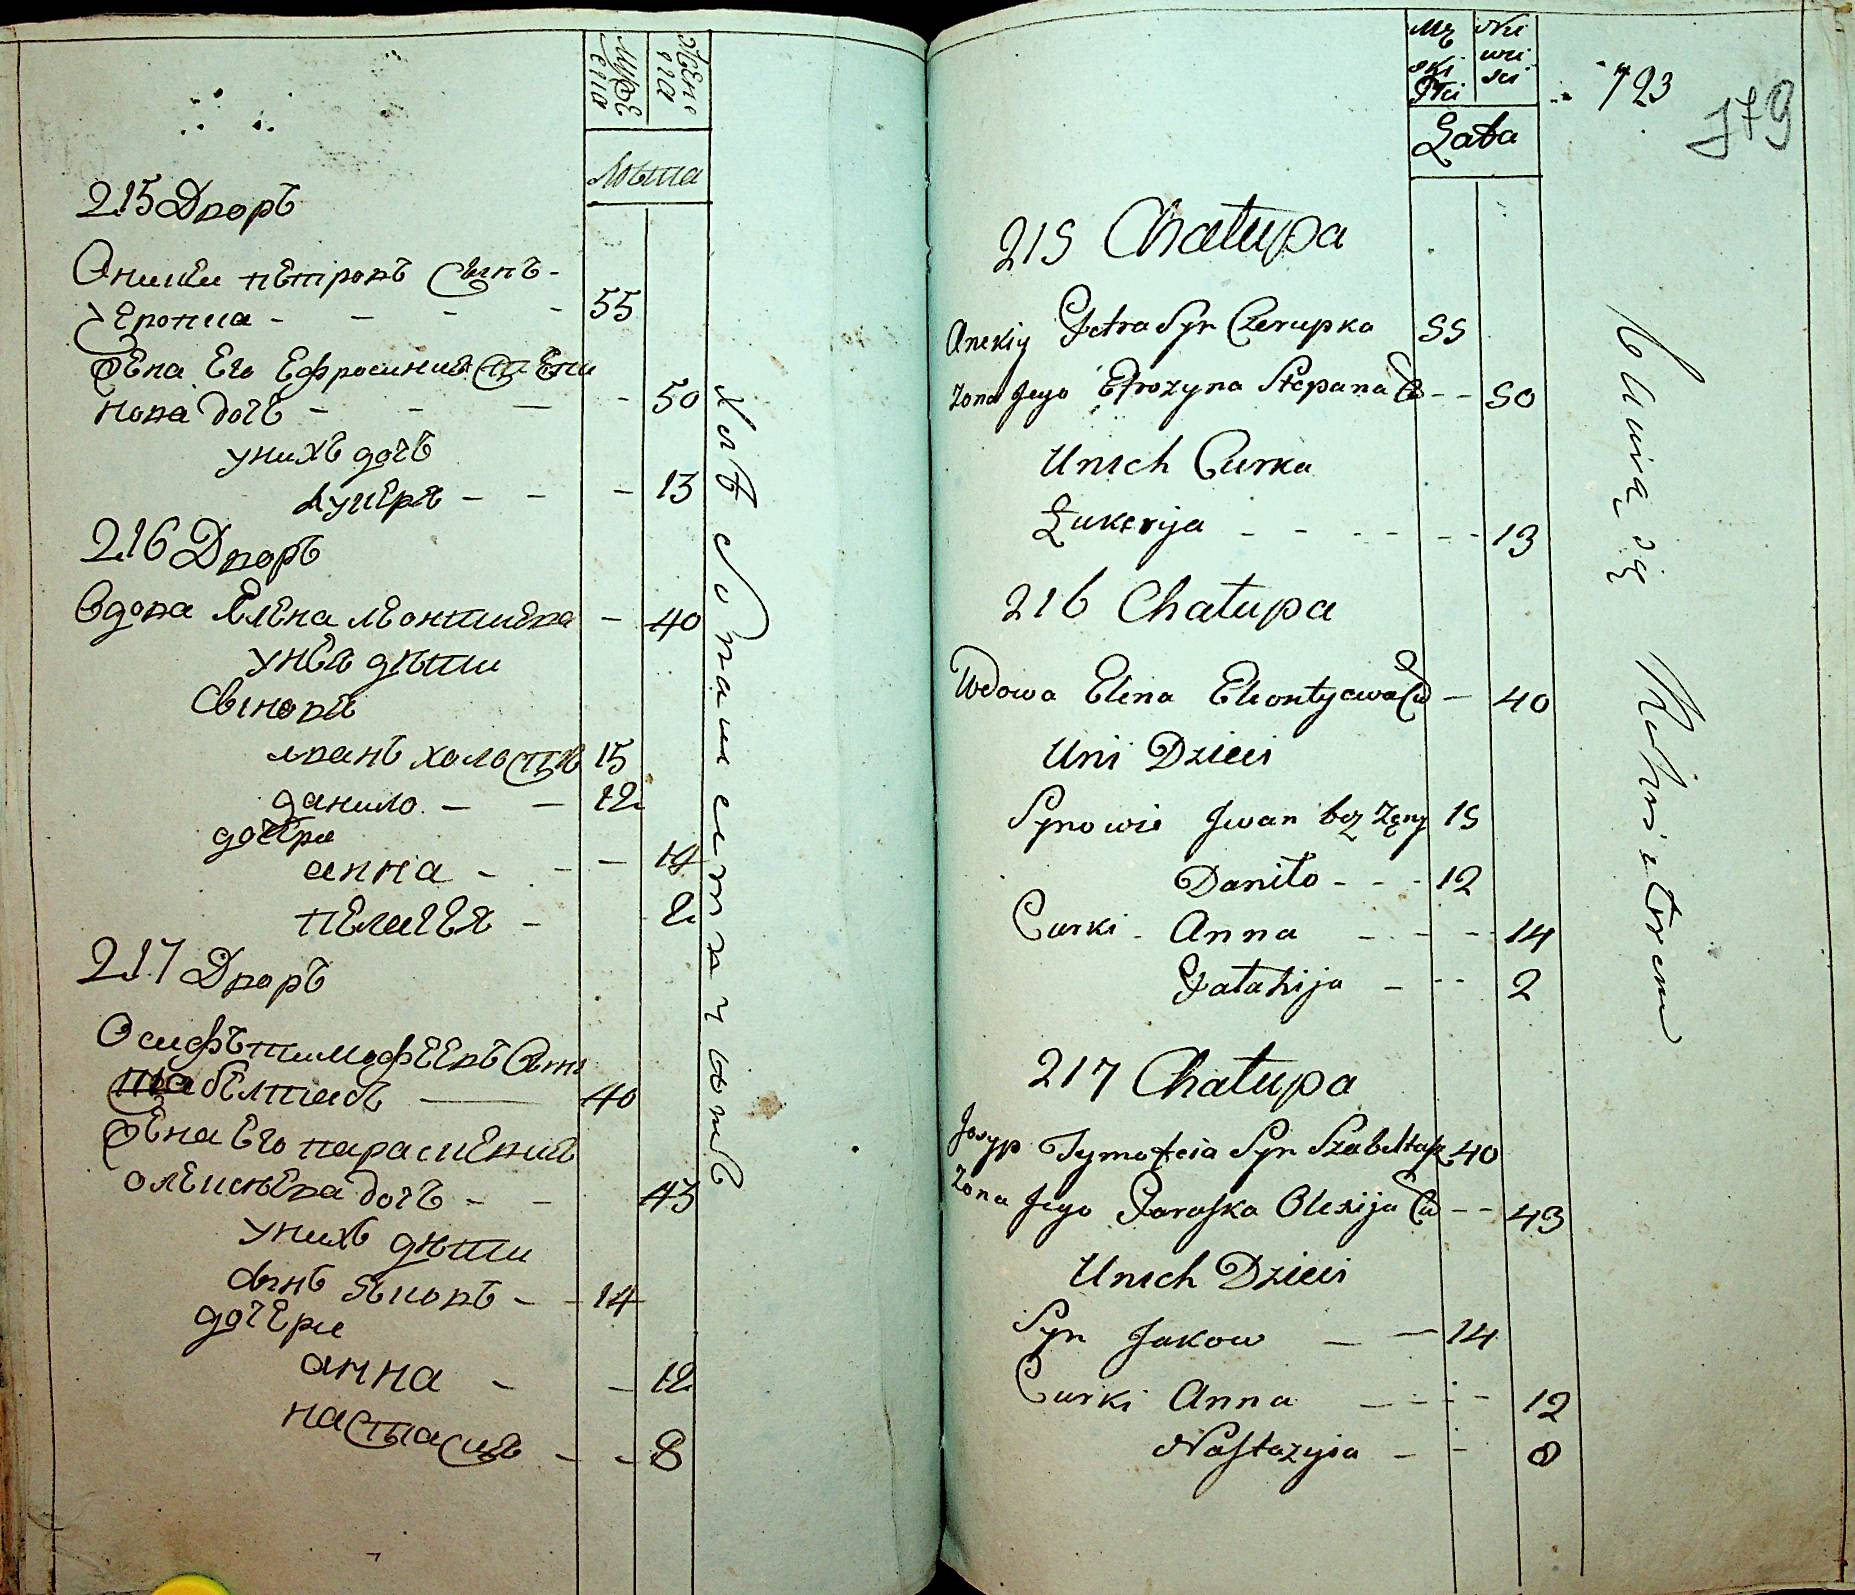 Муже
ска
Женс
ка
Лѣта
215 Дворъ
Оникий петровъ Сынъ -
Черопка - - - - 55
Жена Его Ефросиния Степа
нова дочъ - - - - 50
у них дочъ
Лукеря - - - 13
216 Дворъ
Вдова Елена леонтиева - 40
у нея дѣти
Сынови
иванъ холостъ 15
данило - - 12
дочери
анна - - - 14
пелагея - 2
217 Дворъ
Осифъ тимофеевъ Сынъ
Шабелтасъ - 40
Жена Его параскевия
олексеева дочъ - - 43
у них дѣти
сынъ яковъ - - 14
дочери
анна - - 12
настасия - - 8
Mę
ski
Płci
Nie
wie
sci
Lata
723
179
215 Chałupa
Onekiy Petra Syn Czerupka 55
Zona Jego Efrozyna Stepana Cо - - 50
Unich Curka
Łukerija - - - - - - 13
216 Chałupa
Wdowa Elena Eleontyewa Cо - 40
Uni Dzieci
Synowie Jwan bez Zeny 15
Daniło - - - 12
Curki - Anna - - - - 14
Palahija - - - 2
217 Chałupa
Josyp Tymofeia Syn Szabeltas 40
Zona Jego Paraska Olexija Cо - - 43
Unich Dzieci
Syn Jakow - - 14
Curki Anna - - - - 12
Nastazyia - - 8